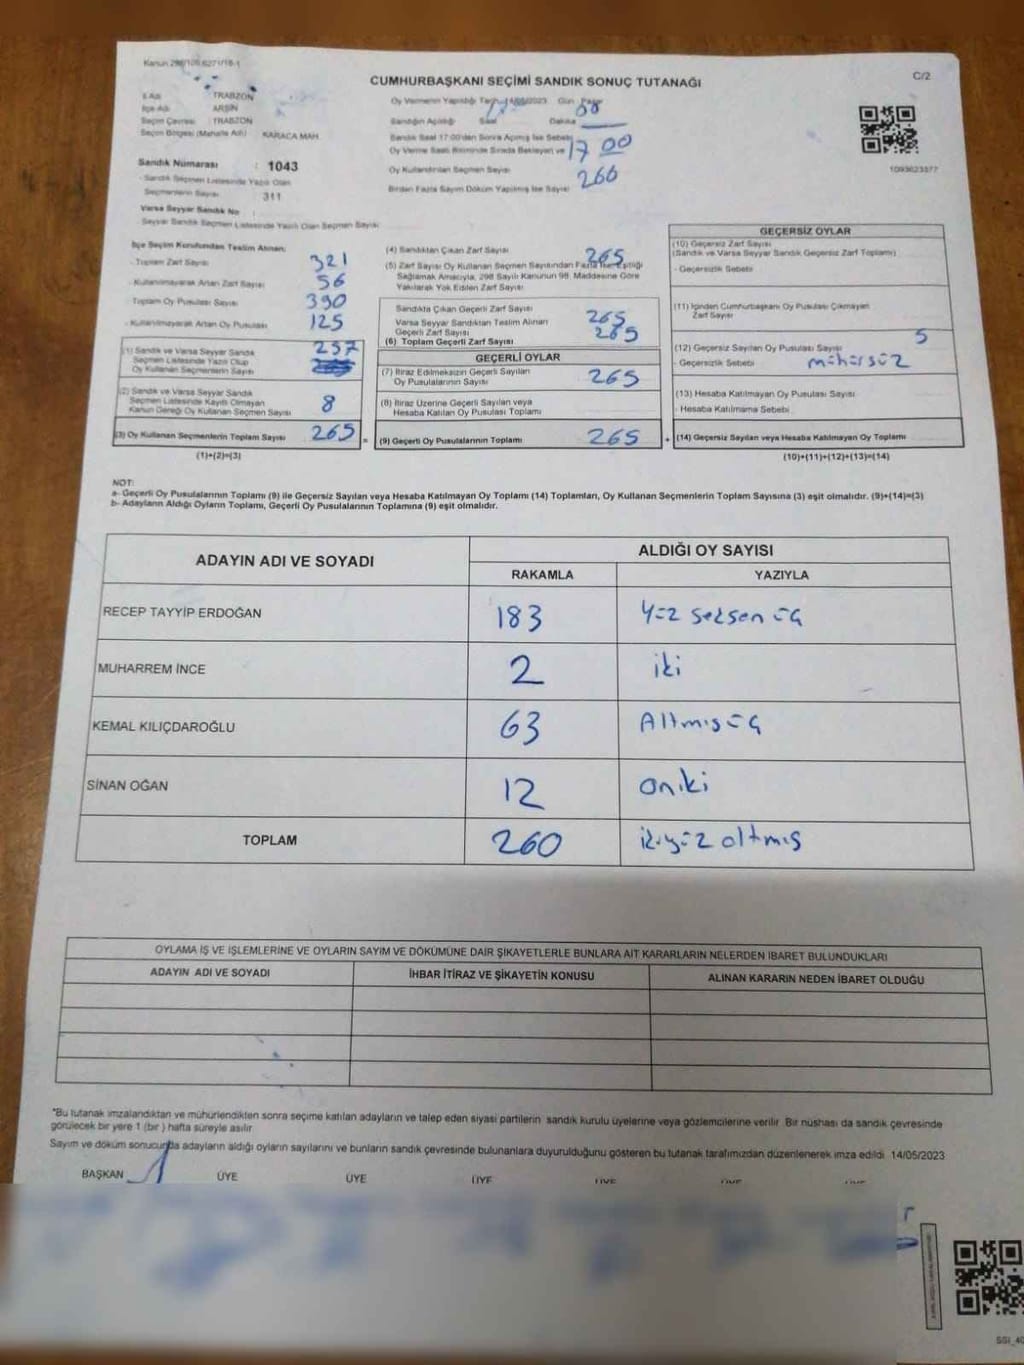 Kanun 298/105,6271/18-1
CUMHURBAŞKANI SEÇİMİ SANDIK SONUÇ TUTANAĞI
C/2
İl Adı : TRABZON
İlçe Adı : ARSİN
Seçim Çevresi : TRABZON
Seçim Bölgesi (Mahalle Adı) : KARACA MAH.
Sandık Numarası : 1043
- Sandık Seçmen Listesinde Yazılı Olan
Seçmenlerin Sayısı : 311
Varsa Seyyar Sandık No :
- Seyyar Sandık Seçmen Listesinde Yazılı Olan Seçmen Sayısı
Oy Vermenin Yapıldığı Tarih 14/05/2023 Gün Pazar
Sandığın Açıldığı Saat Dakika
Sandık Saat 17:00'den Sonra Açılmış İse Sebebi
Oy Verme Saati Bitiminde Sırada Bekleyen ve 17 00
Oy Kullandırılan Seçmen Sayısı
Birden Fazla Sayım Döküm Yapılmış İse Sayısı 266
1093623377
İlçe Seçim Kurulundan Teslim Alınan;
- Toplam Zarf Sayısı 321
- Kullanılmayarak Artan Zarf Sayısı 56
- Toplam Oy Pusulası Sayısı 390
- Kullanılmayarak Artan Oy Pusulası 125
(1) Sandık ve Varsa Seyyar Sandık
Seçmen Listesinde Yazılı Olup
Oy Kullanan Seçmenlerin Sayısı 257
(2) Sandık ve Varsa Seyyar Sandık
Seçmen Listesinde Kayıtlı Olmayan
Kanun Gereği Oy Kullanan Seçmen Sayısı 8
(3) Oy Kullanan Seçmenlerin Toplam Sayısı 265 =
(1)+(2)=(3)
(4) Sandıktan Çıkan Zarf Sayısı 265
(5) Zarf Sayısı Oy Kullanan Seçmen Sayısından Fazla İse Eşitliği
Sağlamak Amacıyla, 298 Sayılı Kanunun 98. Maddesine Göre
Yakılarak Yok Edilen Zarf Sayısı
Sandıkta Çıkan Geçerli Zarf Sayısı 265
Varsa Seyyar Sandıktan Teslim Alınan
Geçerli Zarf Sayısı
(6) Toplam Geçerli Zarf Sayısı 265
GEÇERLİ OYLAR
(7) İtiraz Edilmeksizin Geçerli Sayılan
Oy Pusulalarının Sayısı 265
(8) İtiraz Üzerine Geçerli Sayılan veya
Hesaba Katılan Oy Pusulası Toplamı
(9) Geçerli Oy Pusulalarının Toplamı 265 +
GEÇERSİZ OYLAR
(10) Geçersiz Zarf Sayısı
(Sandık ve Varsa Seyyar Sandık Geçersiz Zarf Toplamı)
- Geçersizlik Sebebi
(11) İçinden Cumhurbaşkanı Oy Pusulası Çıkmayan
Zarf Sayısı
(12) Geçersiz Sayılan Oy Pusulası Sayısı 5
- Geçersizlik Sebebi mühürsüz
(13) Hesaba Katılmayan Oy Pusulası Sayısı
- Hesaba Katılmama Sebebi
(14) Geçersiz Sayılan veya Hesaba Katılmayan Oy Toplamı
(10)+(11)+(12)+(13)=(14)
NOT:
a- Geçerli Oy Pusulalarının Toplamı (9) ile Geçersiz Sayılan veya Hesaba Katılmayan Oy Toplamı (14) Toplamları, Oy Kullanan Seçmenlerin Toplam Sayısına (3) eşit olmalıdır. (9)+(14)=(3)
b- Adayların Aldığı Oyların Toplamı, Geçerli Oy Pusulalarının Toplamına (9) eşit olmalıdır.
ADAYIN ADI VE SOYADI
ALDIĞI OY SAYISI
RAKAMLA YAZIYLA
RECEP TAYYİP ERDOĞAN 183 Yüz seksen üç
MUHARREM İNCE 2 iki
KEMAL KILIÇDAROĞLU 63 Altmış üç
SİNAN OĞAN 12 oniki
TOPLAM 260 ikiyüz altmış
OYLAMA İŞ VE İŞLEMLERİNE VE OYLARIN SAYIM VE DÖKÜMÜNE DAİR ŞİKAYETLERLE BUNLARA AİT KARARLARIN NELERDEN İBARET BULUNDUKLARI
ADAYIN ADI VE SOYADI İHBAR İTİRAZ VE ŞİKAYETİN KONUSU ALINAN KARARIN NEDEN İBARET OLDUĞU
*Bu tutanak imzalandıktan ve mühürlendikten sonra seçime katılan adayların ve talep eden siyasi partilerin sandık kurulu üyelerine veya gözlemcilerine verilir. Bir nüshası da sandık çevresinde
görülecek bir yere 1 (bir) hafta süreyle asılır.
Sayım ve döküm sonucunda adayların aldığı oyların sayılarını ve bunların sandık çevresinde bulunanlara duyurulduğunu gösteren bu tutanak tarafımızdan düzenlenerek imza edildi. 14/05/2023
BAŞKAN ÜYE ÜYE ÜYE ÜYE ÜYE ÜYE